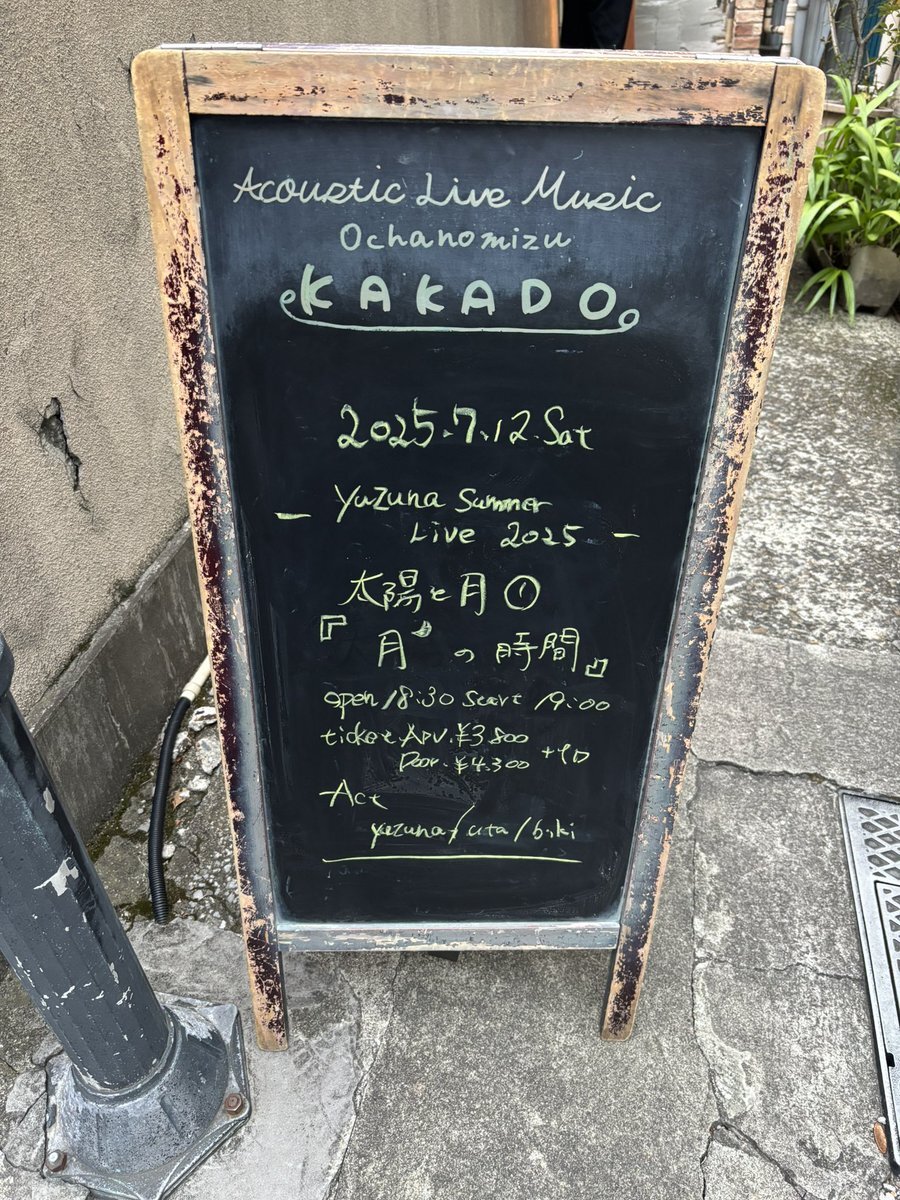 Acoustic Live Music
Ochanomizu
KAKADO
2025.7.12.Sat
- yuzuna Summer
Live 2025 -
太陽と月①
『月の時間』
open/18:30 start/19:00
ticket Adv.¥3.800
Door.¥4.300 +1D
Act
yuzuna/uta/biki